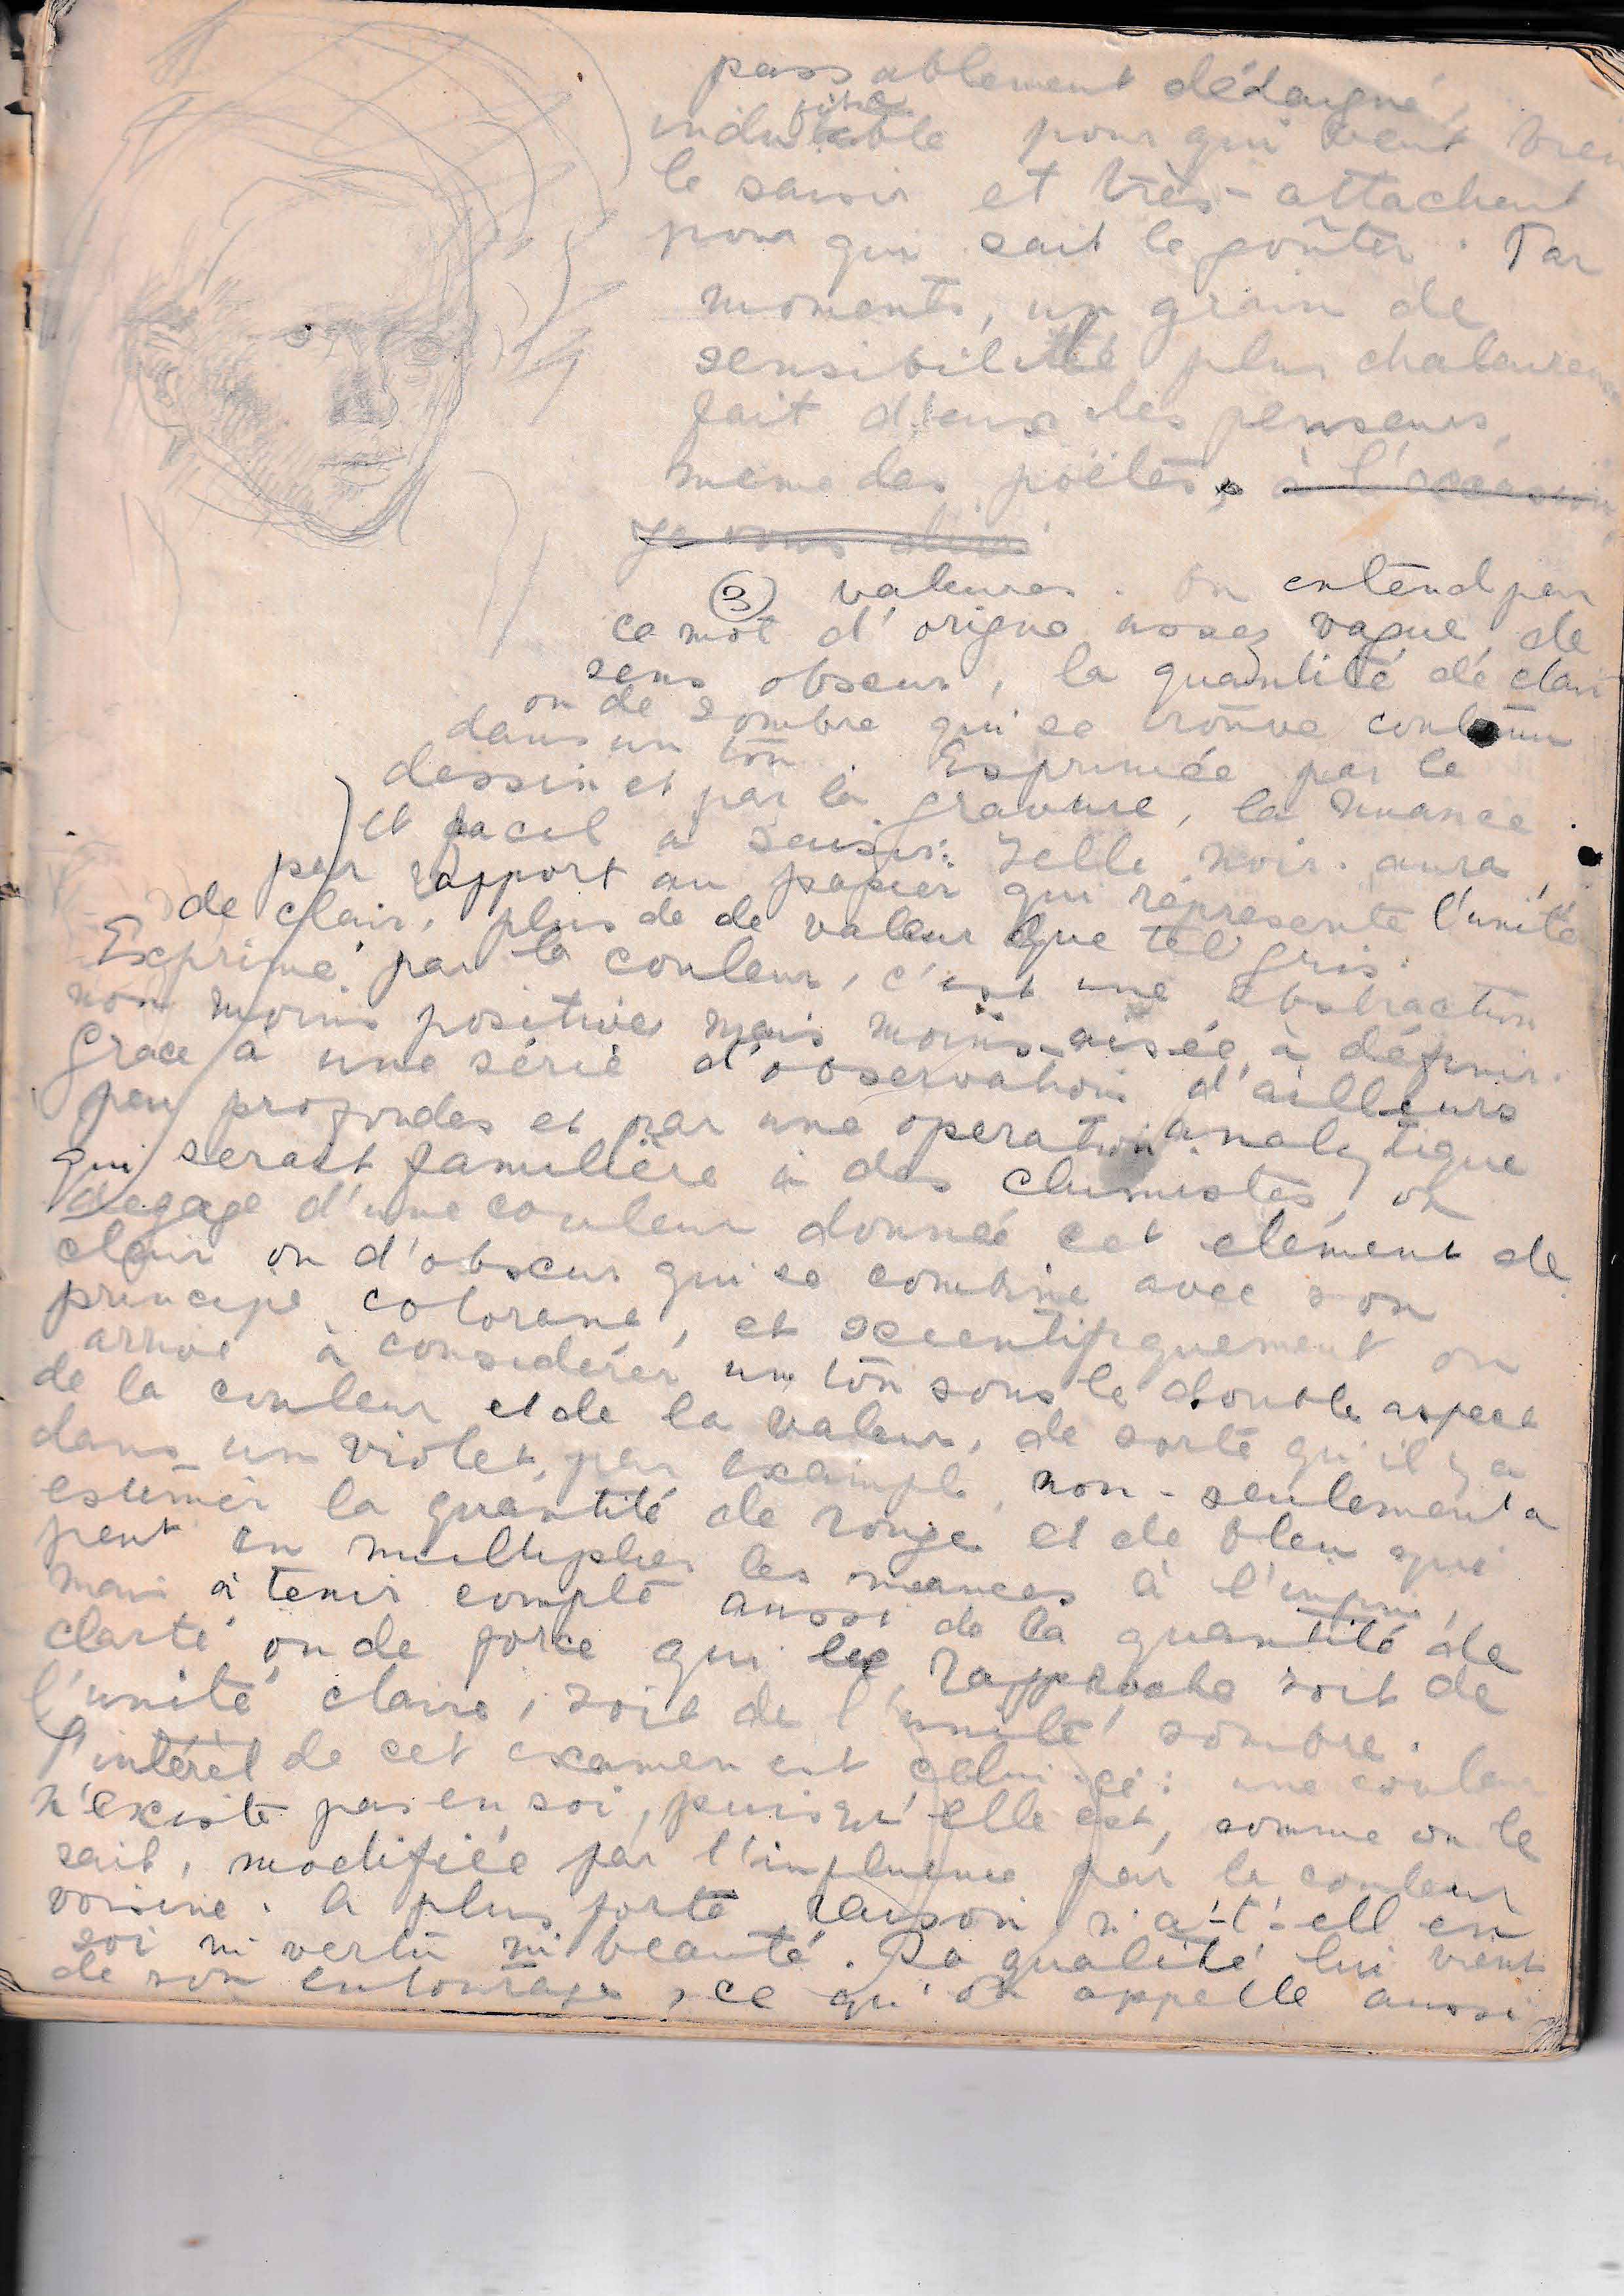 passablement dédaigné,
indubitable pour qui veut bien
le savoir et très-attachant
pour qui sait le goûter. Par
moments, un grain de
sensibilité plus chaleureuse
fait d'eux des penseurs,
meme des poëtes, à l'occasion
Je vous dirai
③ valeures. On entend par
ce mot d'origne assez vague, de
sens obscur, la quantité de clair
ou de sombre qui se trouve contenu
dans un ton. Exprimée par le
dessin et par la gravure, la nuance
et facil a saisir: telle noir. aura,
par rapport au papier qui represente l'unité
de clair, plus de de valeur que tel gris.
Exprimé par la couleur, c'est une abstraction
non moins positive, mais moins aisée à définir.
Grace à une série d'observations d'ailleurs
peu profondes et par une operation analytique
qui serait familière à des chimistes, on
dégage d'une couleur donnée cet elément de
clair ou d'obscur qui se combine avec son
principe colorant, et scientifiquement on
arrive à considérer un ton sous le double aspect
de la couleur et de la valeur, de sorte qu'il y a
dans un violet, par exemple, non-seulement a
estimer la quantité de rouge et de bleu qui
peut en multiplier les nuances à l'infini,
mais à tenir compte aussi de la quantité de
clarté ou de force qui le rapproche soit de
l'unité claire, soit de l'unité sombre.
l'intérêt de cet examen est celui-ci: une couleur
n'existe pas en soi, puisqu'elle est, comme on le
sait, modifiée par l'influence par la couleur
voisine. A plus forte raison n'a-t-ell en
soi ni vertu ni beauté. Sa qualité lui vient
de son entourage, ce qu'on appelle aussi